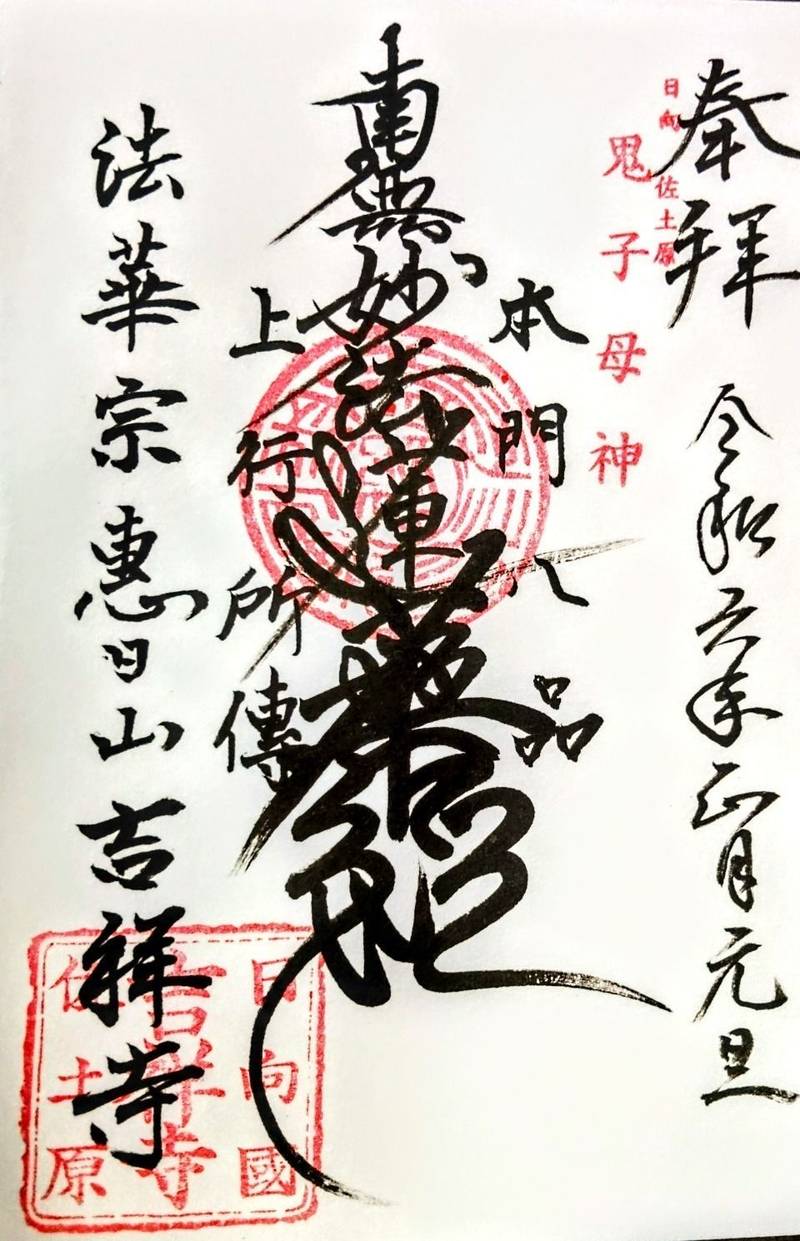 奉拝
令和六年正月元旦
日向 佐土原
鬼子母神
本門八品
南無妙法蓮華経
上行所傳
法華宗 恵日山 吉祥寺
日向國
吉祥寺
佐土原